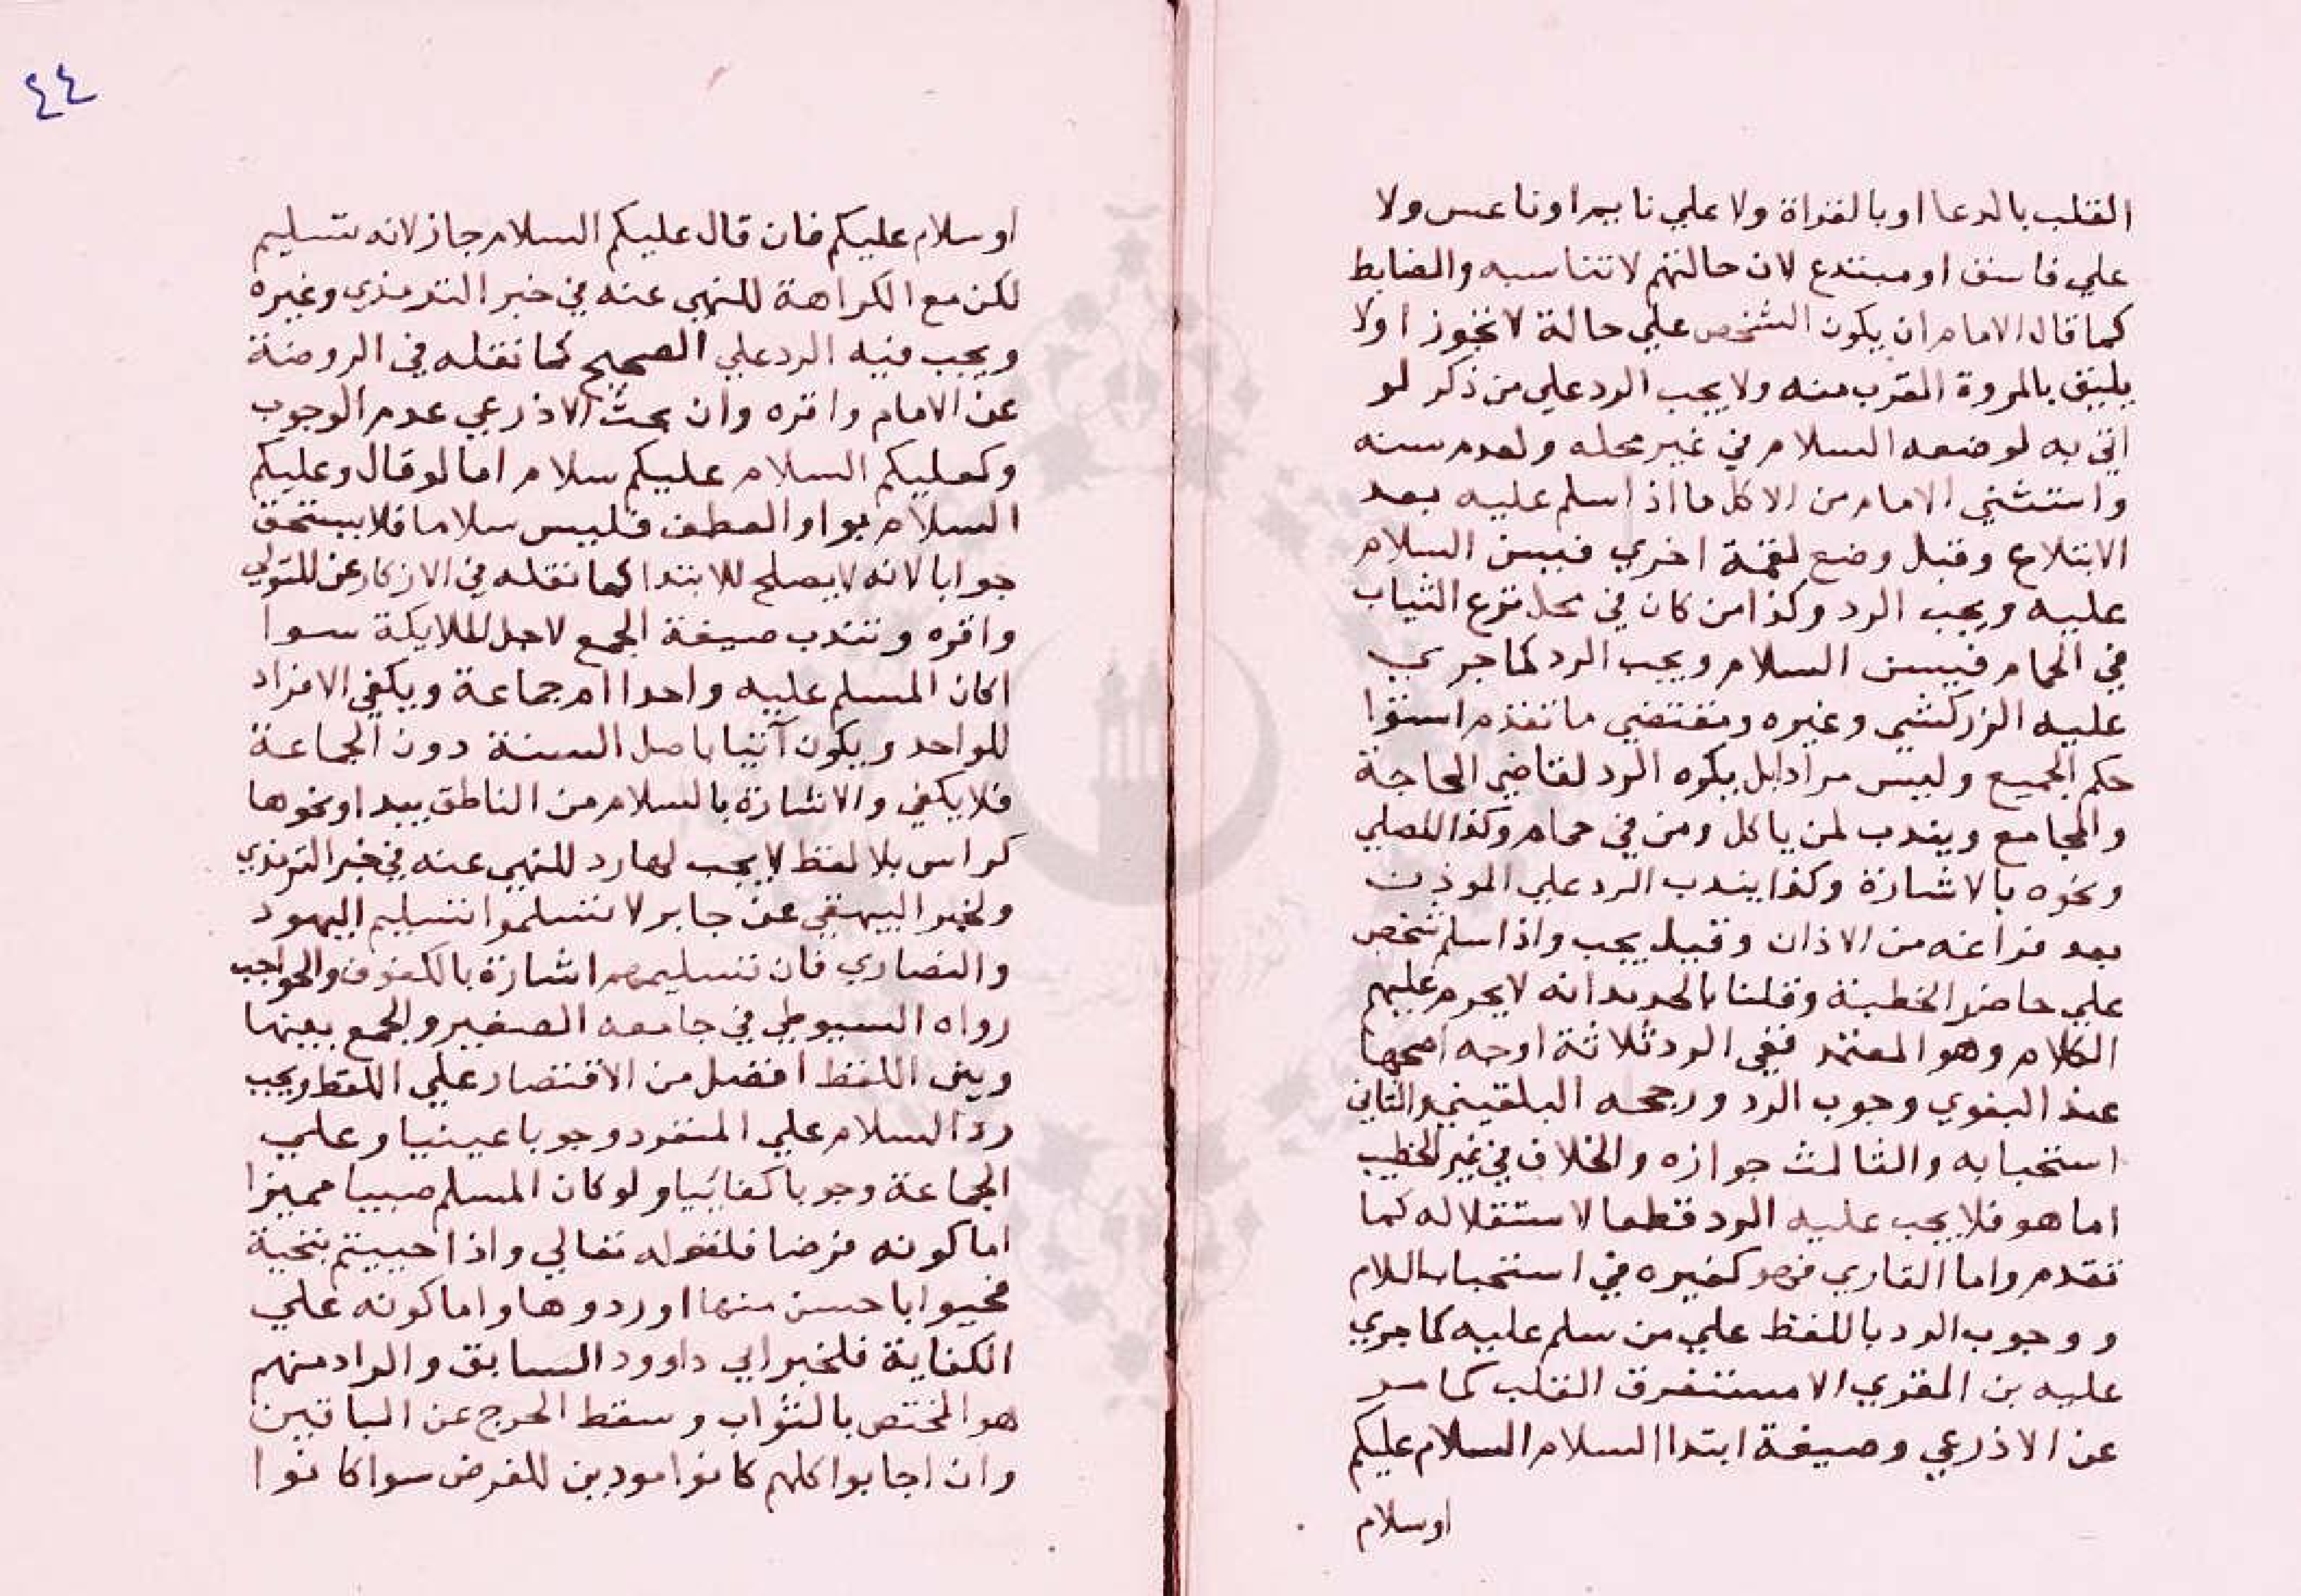 القلب بالدعا او بالقراة ولا علي نايم او ناعس ولا
علي فاسق او مبتدع لان حالتهم لا تناسبه والضابط
كما قال الامام ان يكون الشخص علي حالة لا يجوز او لا
يليق بالمروة القرب منه ولا يجب الرد علي من ذكر لو
اتي به لوضعه السلام في غير محله ولعدم سنه
واستثني الامام من الاكل ما اذا سلم عليه بعد
الابتلاع وقبل وضع لقمة اخري فيسن السلام
عليه ويجب الرد وكذا من كان في محل نزع الثياب
في الحمام فيسن السلام ويجب الرد كما جري
عليه الزركشي وغيره ومقتضي ما تقدم استوا
حكم الجميع وليس مرادا بل يكره الرد لقاضي الحاجة
والمجامع ويندب لمن ياكل ومن في حمام وكذا المصلي
ونحوه بالاشارة وكذا يندب الرد علي الموذن
بعد فراغه من الاذان وقيل يجب واذا سلم شخص
علي حاضر الخطبة وقلنا بالجديد انه لا يحرم عليهم
الكلام وهو المعتمد ففي الرد ثلاثة اوجه اصحها
عند البغوي وجوب الرد ورجحه البلقيني والثاني
استحبابه والثالث جوازه والخلاف في غير الخطيب
اما هو فلا يجب عليه الرد قطعا لاستقلاله كما
تقدم واما القاري فهو كغيره في استحباب السلام
و وجوب الرد باللفظ علي من سلم عليه كما جري
عليه بن المقري الا مستغرق القلب كما مر
عن الاذرعي وصيغة ابتدا السلام السلام عليكم
او سلام
٤٤
او سلام عليكم فان قال عليكم السلام جاز لانه تسليم
لكن مع الكراهة للنهي عنه في خبر الترمذي وغيره
ويجب فيه الرد علي الصحيح كما نقله في الروضة
عن الامام واقره وان بحث الاذرعي عدم الوجوب
وكعليكم السلام عليكم سلام اما لو قال وعليكم
السلام بواو العطف فليس سلاما فلا يستحق
جوابا لانه لا يصلح للابتدا كما نقله في الاذكار عن المتولي
واقره وتندب صيغة الجمع لاجل الملايكة سوا
اكان المسلم عليه واحدا ام جماعة ويكفي الافراد
للواحد ويكون آتيا باصل السنة دون الجماعة
فلا يكفي والاشارة بالسلام من الناطق بيد او نحوها
كراس بلا لفظ لا يجب لها رد للنهي عنه في خبر الترمذي
ولخبر البيهقي عن جابر لا تسلموا تسليم اليهود
والنصاري فان تسليمهم اشارة بالكفوف والحواجب
رواه السيوطي في جامعه الصغير والجمع بينها
وبين اللفظ افضل من الاقتصار علي اللفظ ويجب
رد السلام علي المنفرد وجوبا عينيا وعلي
الجماعة وجوبا كفائيا ولو كان المسلم صبيا مميزا
اما كونه فرضا فلقوله تعالي واذا حييتم بتحية
فحيوا باحسن منها او ردوها واما كونه علي
الكفاية فلخبر ابي داوود السابق والراد منهم
هو المختص بالثواب وسقط الحرج عن الباقين
وان اجابوا كلهم كانوا مودين للفرض سوا كانوا